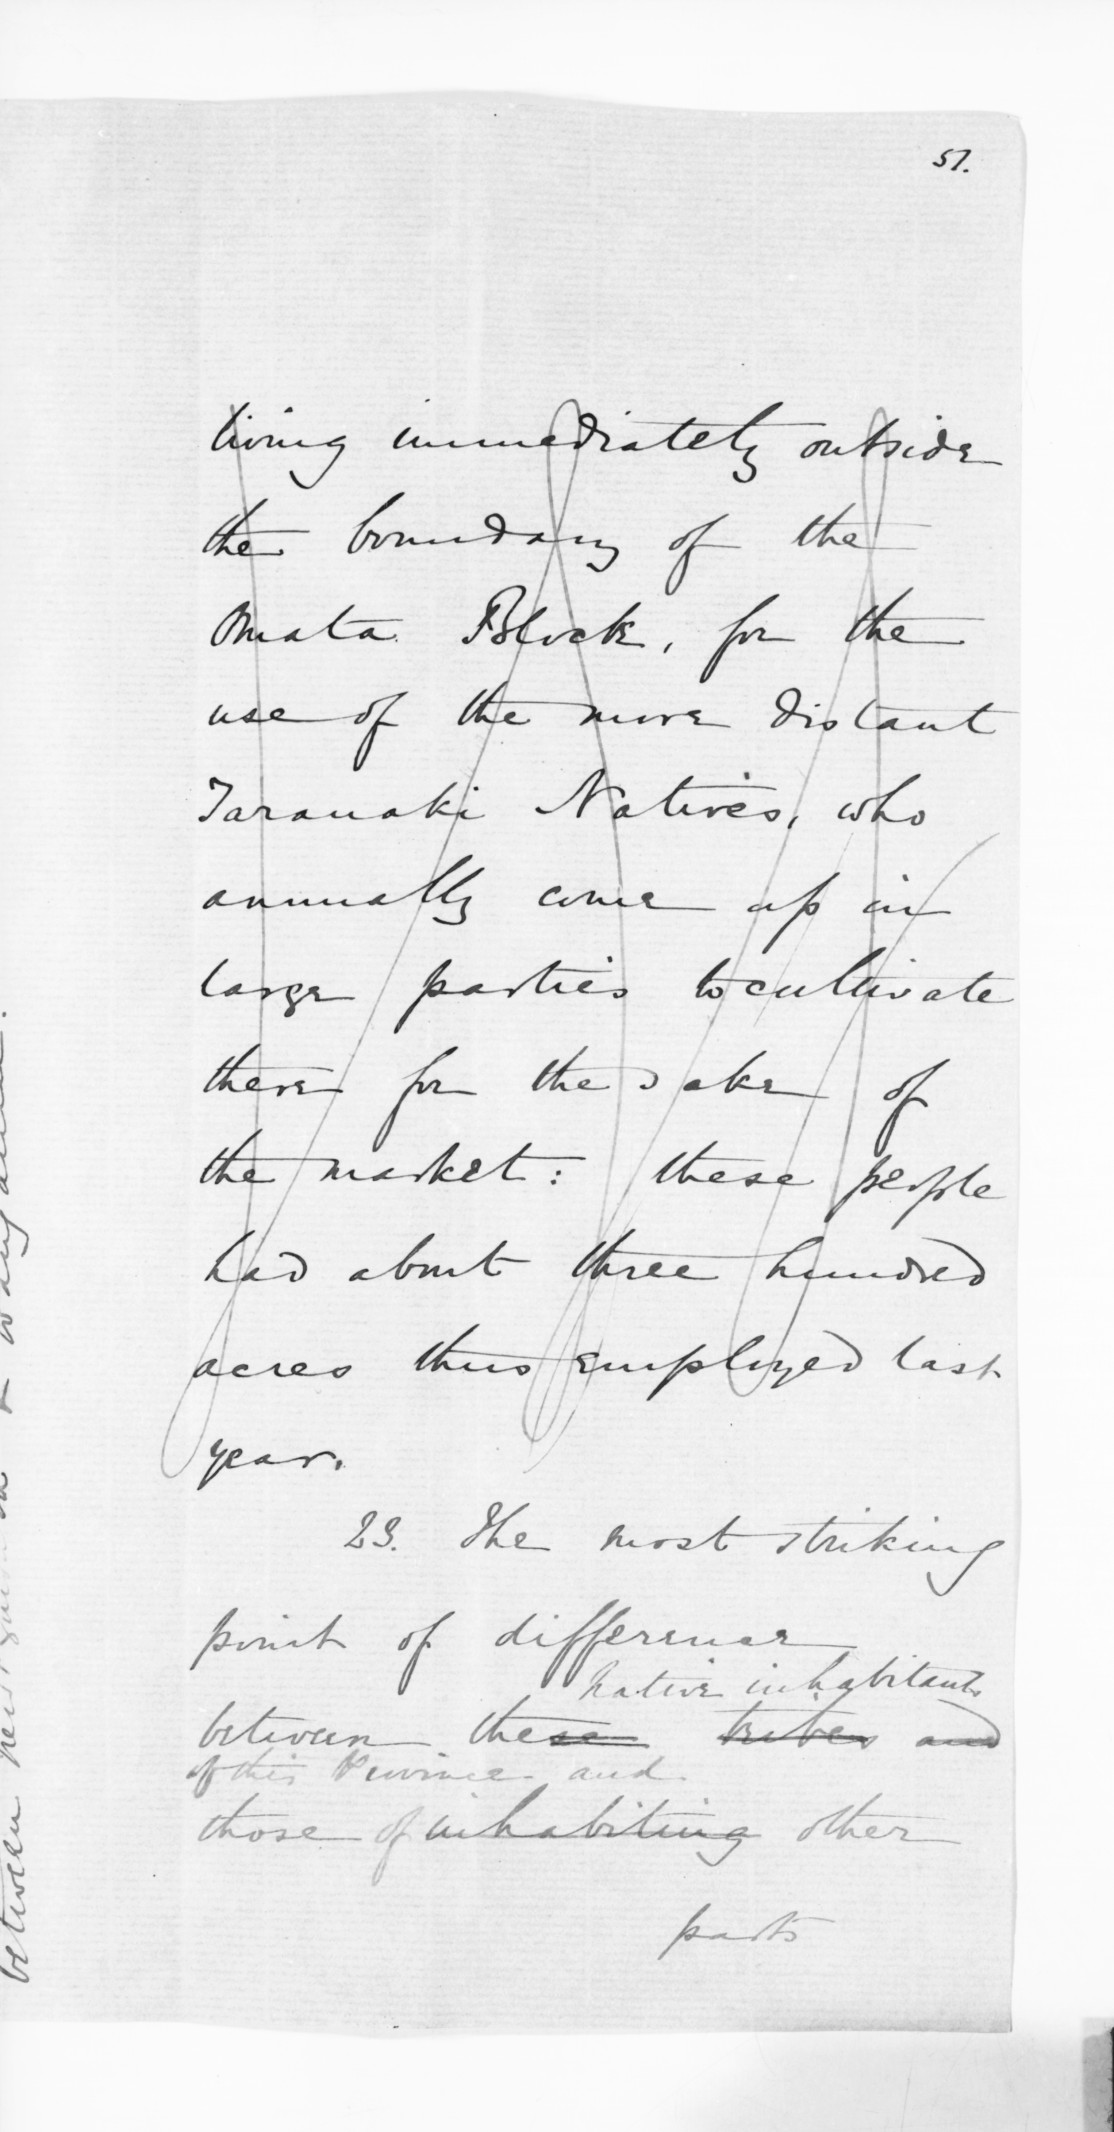 51.
living immediately outside
the boundary of the
Omata Block, for the
use of the more distant
Taranaki Natives, who
annually come up in
large parties to cultivate
there for the sake of
the market: these people
had about three hundred
acres thus employed last
year.
23. The most striking
point of difference
native inhabitants
between these tribes and
of this Province and
those of inhabiting other
parts
between